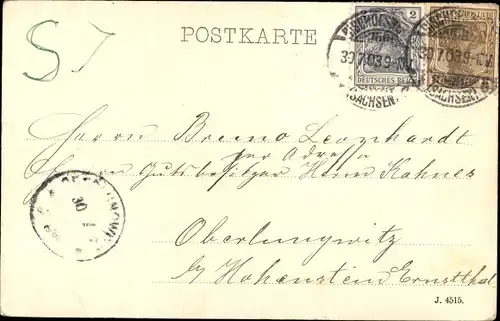 POSTKARTE
2
DEUTSCHES REICH
30.7.03.9-
(SACHSEN)
30.7.03.9-
(SACHSEN)
Herrn Bruno Leonhardt
per Adresse
Herrn Gutsbesitzer Hahner
Oberlungwitz
b/ Hohenstein Ernstthal
30
J. 4515.